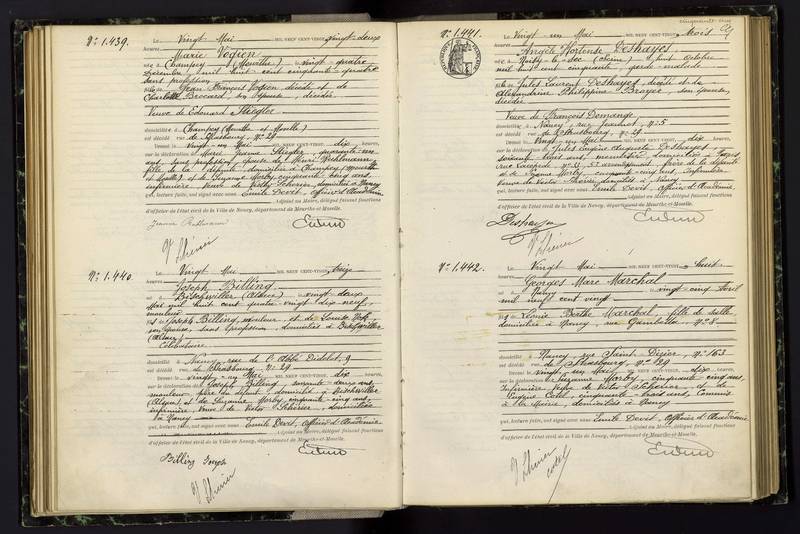 N° 1.439.
Vingt Mai MIL NEUF CENT-VINGT, vingt-deux
heures,
Marie Vogien
née à Champey (Meurthe) le vingt-quatre
Décembre mil huit cent cinquante-quatre
sans profession
fille de Jean François Vogien décédé et de
Charlotte Brocard, son épouse, décédée
Veuve de Edouard Stiegler
domiciliée à Champey (Meurthe et Moselle)
est décédée rue de Strasbourg, N° 29
Dressé le vingt-un Mai MIL NEUF CENT VINGT, dix heures,
sur la déclaration de Marie Jeanne Stiegler, quarante-un
ans, sans profession, épouse de Henri
fille de la défunte, domiciliée à Champey (Meurthe
et Moselle) et de Suzanne Morby, cinquante-cinq ans,
infirmière, veuve de Victor Scherier, domiciliée à Nancy
qui, lecture faite, ont signé avec nous Emile Devit, Officier d'Académie
Adjoint au Maire, délégué faisant fonctions
d'officier de l'état civil de la Ville de Nancy, département de Meurthe-et-Moselle.
N° 1.440.
Le Vingt Mai MIL NEUF CENT-VINGT, treize
heures,
Joseph Billing
né à Bischwiller (Alsace) le vingt-deux
Mai mil huit cent quatre-vingt-dix-neuf
monteur
fils de Joseph Billing, monteur, et de Louise
son épouse, sans profession, domiciliés à Bischwiller
(Alsace)
Célibataire
domicilié à Nancy, rue de l'Abbé Didelot, 9
est décédé rue de Strasbourg N° 29
Dressé le vingt-un Mai MIL NEUF CENT VINGT, dix heures,
sur la déclaration de Joseph Billing, soixante-deux ans,
monteur, père du défunt, domicilié à Bischwiller
(Alsace) et de Suzanne Morby, cinquante-cinq ans,
infirmière, veuve de Victor Scherier, domiciliée
à Nancy
qui, lecture faite, ont signé avec nous Emile Devit, Officier d'Académie
Adjoint au Maire, délégué faisant fonctions
d'officier de l'état civil de la Ville de Nancy, département de Meurthe-et-Moselle.
Billing Joseph
N° 1.441.
Le Vingt un Mai MIL NEUF CENT-VINGT, trois
heures
Angèle Hortense Deshayes
née à Noisy-le-Sec (Seine) le huit octobre
mil huit cent cinquante, garde malade
fille de Jules Laurent Deshayes, décédé et de
Alexandrine Philippine Broyer, son épouse,
décédée
Veuve de François Domange
domiciliée à Nancy, rue Jeannot, N° 5
est décédée rue de Strasbourg, N° 29
Dressé le vingt-un Mai MIL NEUF CENT VINGT, dix heures,
sur la déclaration de Jules Eugène Auguste Deshayes
soixante ans, domicilié à Paris,
rue frère de la défunte
et de Suzanne Morby, cinquante-cinq ans, infirmière
veuve de Victor Scherier, domiciliée à Nancy
qui, lecture faite, ont signé avec nous Emile Devit, Officier d'Académie
Adjoint au Maire, délégué faisant fonctions
d'officier de l'état civil de la Ville de Nancy, département de Meurthe-et-Moselle.
Deshayes
N° 1.442.
Le Vingt Mai MIL NEUF CENT-VINGT, huit
heures,
Georges Marc Marchal
né à Nancy le vingt-cinq Avril
mil neuf cent vingt
fils de Léonie Berthe Marchal, fille de salle
domiciliée à Nancy, rue Gambetta, N° 8
domicilié à Nancy rue Saint-Dizier, N° 163
est décédé rue de Strasbourg, N° 129
Dressé le vingt-un Mai MIL NEUF CENT VINGT, dix heures,
sur la déclaration de Suzanne Morby, cinquante-cinq ans,
infirmière, veuve de Victor Scherier et de
Eugène Cotel, cinquante-trois ans, commis
à la Mairie, domiciliés à Nancy
qui, lecture faite, ont signé avec nous Emile Devit, Officier d'Académie
Adjoint au Maire, délégué faisant fonctions
d'officier de l'état civil de la Ville de Nancy, département de Meurthe-et-Moselle.
Cotel